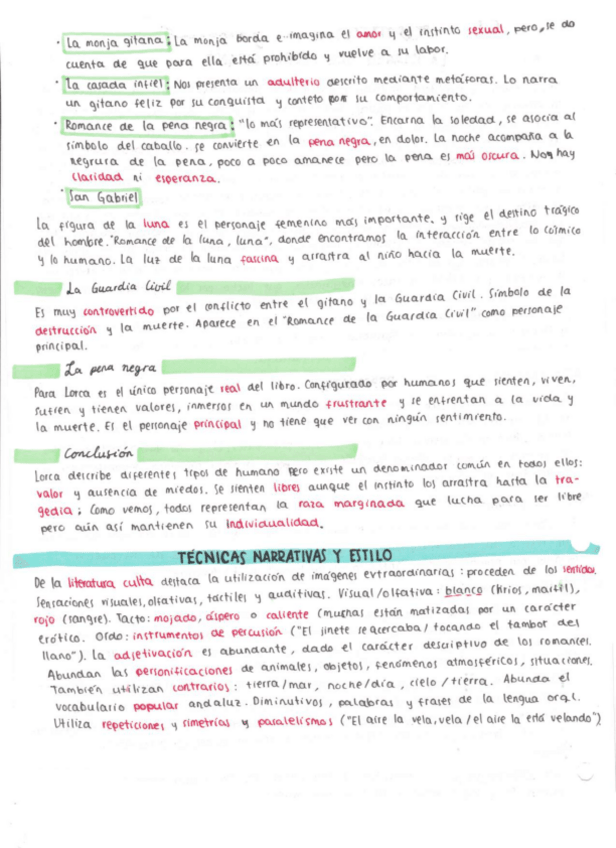 · La monja gitana: La monja borda e imagina el amor y el instinto sexual, pero, se da
cuenta de que para ella está prohibido y vuelve a su labor.
· La casada infiel: Nos presenta un adulterio descrito mediante metáforas. Lo narra
un gitano feliz por su conquista y conteto por su comportamiento.
· Romance de la pena negra: "lo más representativo". Encarna la soledad, se asocia al
símbolo del caballo. se convierte en la pena negra, en dolor. La noche acompaña a la
negrura de la pena, poco a poco amanece pero la pena es más oscura. No hay
claridad ni esperanza.
· San Gabriel
La figura de la luna es el personaje femenino más importante, y rige el destino trágico
del hombre. "Romance de la luna, luna", donde encontramos la interacción entre lo cósmico
y lo humano. La luz de la luna fascina y arrastra al niño hacia la muerte.
La Guardia Civil
Es muy controvertido por el conflicto entre el gitano y la Guardia Civil. Símbolo de la
destrucción y la muerte. Aparece en el "Romance de la Guardia Civil" como personaje
principal.
La pena negra
Para Lorca es el único personaje real del libro. Configurado por humanos que sienten, viven,
sufren y tienen valores, inmersos en un mundo frustrante y se enfrentan a la vida y
la muerte. Es el personaje principal y no tiene que ver con ningún sentimiento.
Conclusión
Lorca describe diferentes tipos de humano pero existe un denominador común en todos ellos:
valor y ausencia de miedos. Se sienten libres aunque el instinto los arrastra hasta la tra-
gedia; Como vemos, todos representan la raza marginada que lucha para ser libre
pero aún así mantienen su individualidad.
TÉCNICAS NARRATIVAS Y ESTILO
De la literatura culta destaca la utilización de imágenes extraordinarias: proceden de los sentidos.
Sensaciones visuales, olfativas, táctiles y auditivas. Visual/olfativa: blanco (lirios, marfil),
rojo (sangre). Tacto: mojado, áspero o caliente (muchas están matizadas por un carácter
erótico. Oído: instrumentos de percusión ("El jinete se acercaba/ tocando el tambor del
llano"). La adjetivación es abundante, dado el carácter descriptivo de los romances.
Abundan las personificaciones de animales, objetos, fenómenos atmosféricos, situaciones.
También utilizan contrarios: tierra/mar, noche/día, cielo/tierra. Abunda el
vocabulario popular andaluz. Diminutivos, palabras y frases de la lengua oral.
Utiliza repeticiones y simetrías y paralelismos ("El aire la vela, vela / el aire la está velando")